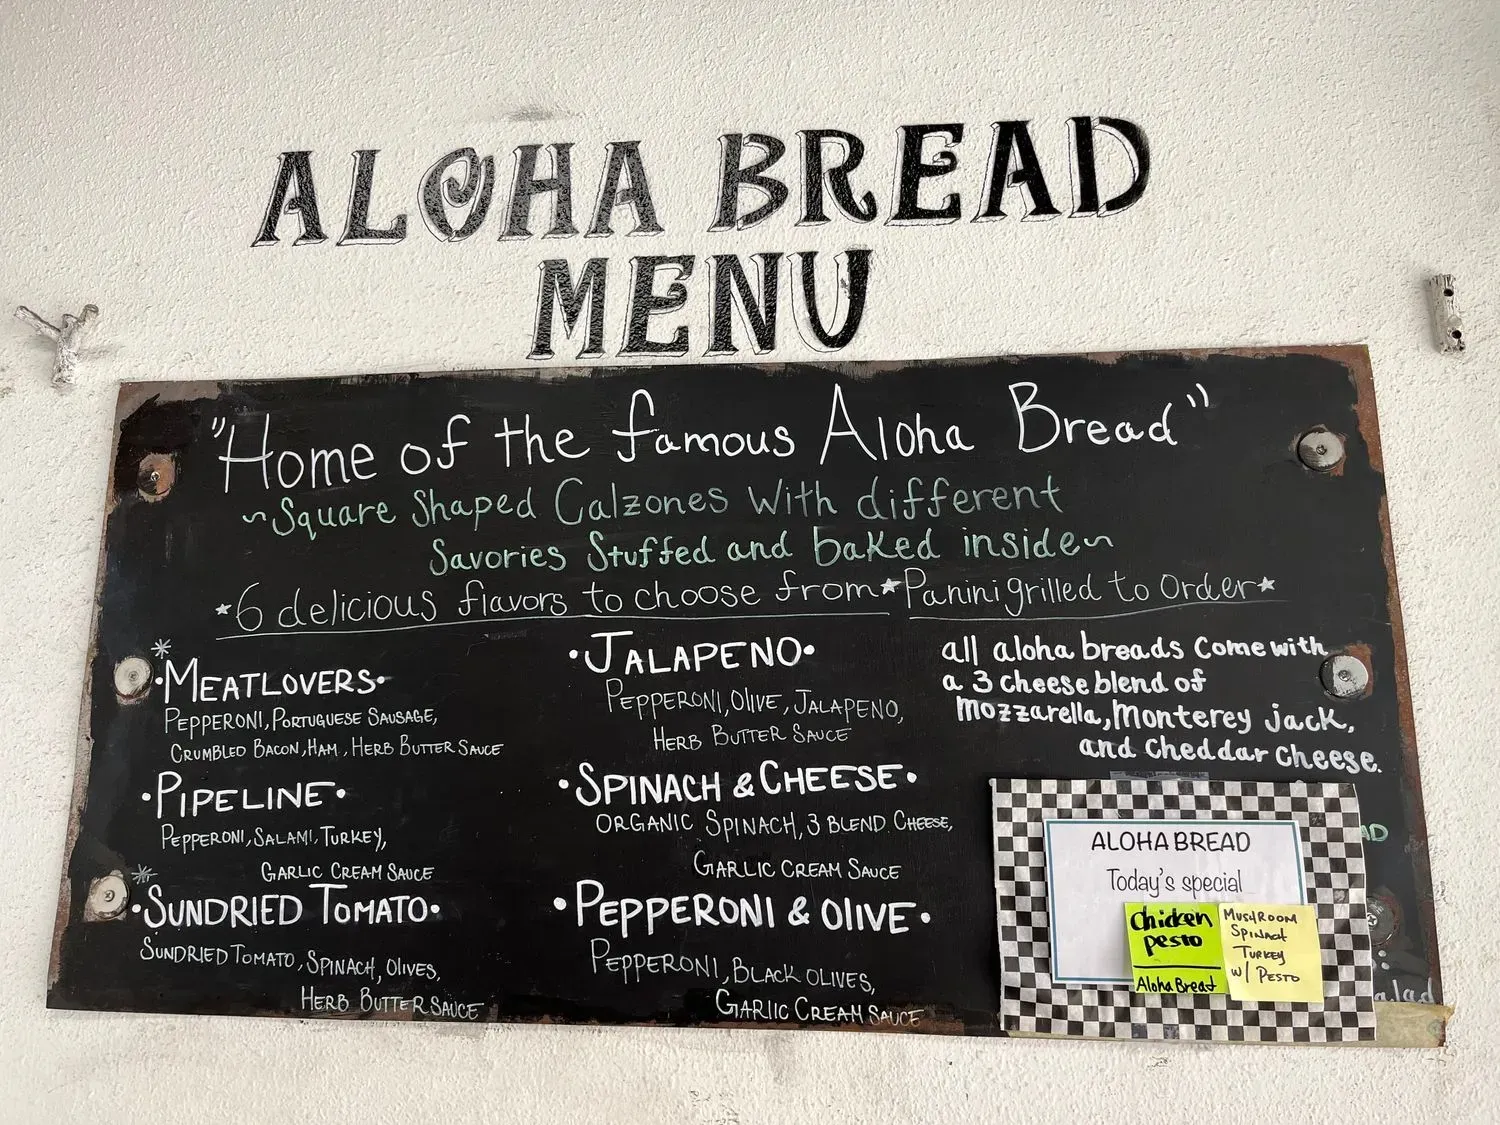 ALOHA BREAD
MENU
"Home of the famous Aloha Bread"
~Square Shaped Calzones With different
Savories Stuffed and baked inside~
*6 delicious flavors to choose from*Panini grilled to order*
*
•MEATLOVERS•
PEPPERONI, PORTUGUESE SAUSAGE,
CRUMBLED BACON, HAM, HERB BUTTER SAUCE
•PIPELINE•
PEPPERONI, SALAMI, TURKEY,
GARLIC CREAM SAUCE
*
•SUNDRIED TOMATO•
SUNDRIED TOMATO, SPINACH, OLIVES,
HERB BUTTER SAUCE
•JALAPENO•
PEPPERONI, OLIVE, JALAPENO,
HERB BUTTER SAUCE
•SPINACH & CHEESE•
ORGANIC SPINACH, 3 BLEND CHEESE,
GARLIC CREAM SAUCE
•PEPPERONI & OLIVE•
PEPPERONI, BLACK OLIVES,
GARLIC CREAM SAUCE
all aloha breads come with
a 3 cheese blend of
mozzarella, Monterey jack,
and cheddar cheese.
ALOHA BREAD
Today's special
Chicken
pesto
Aloha Bread
MUSHROOM
SPINACH
TURKEY
W/ PESTO